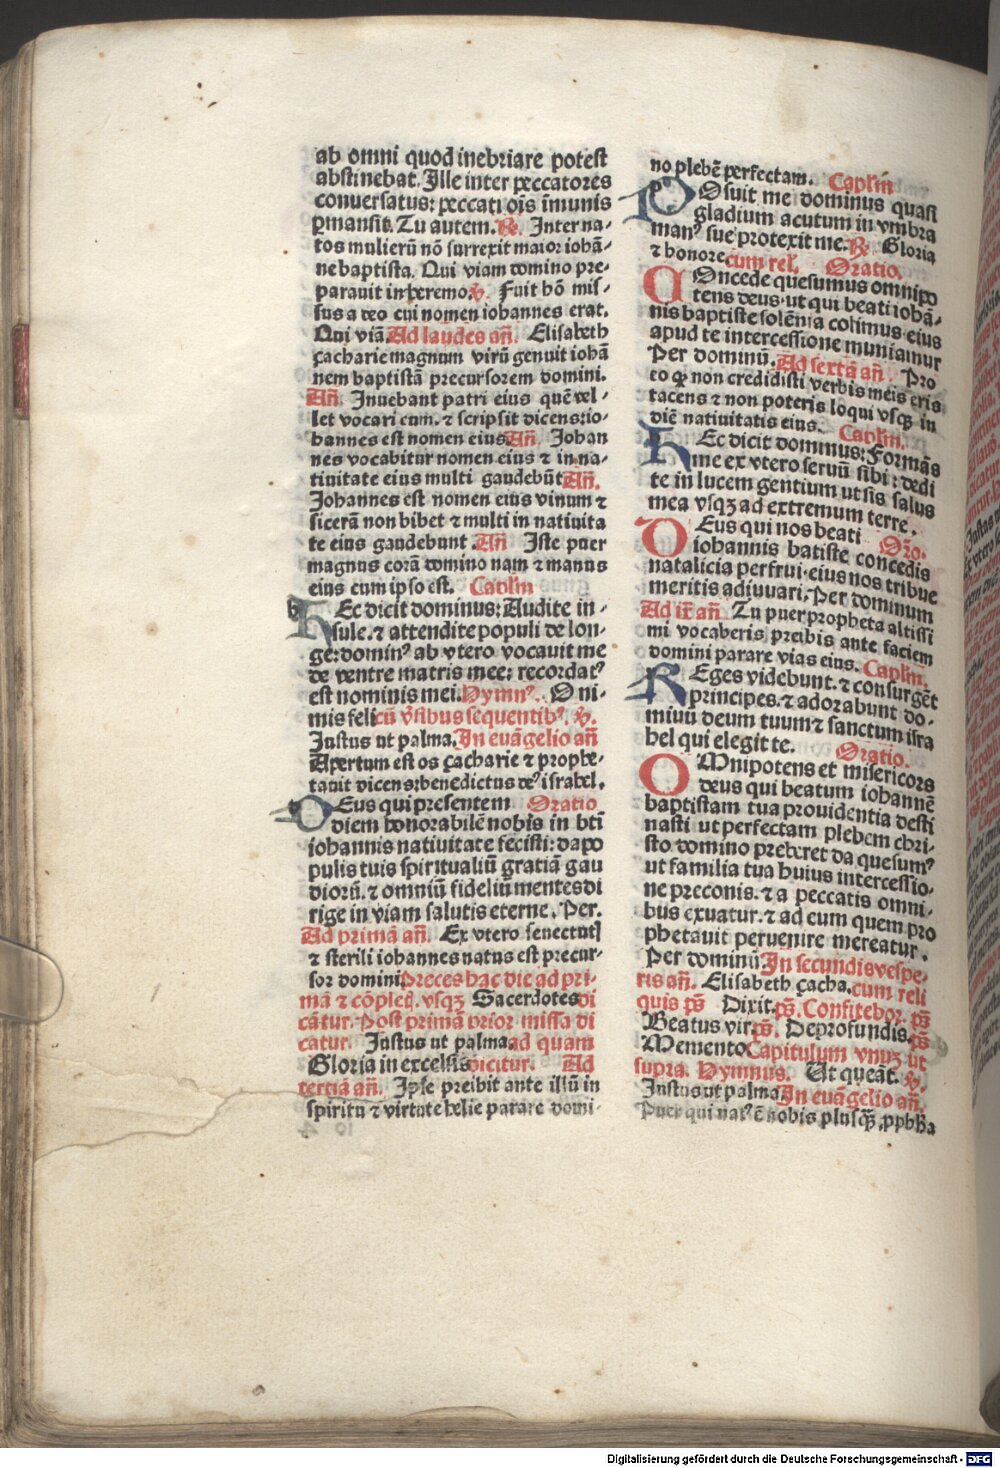 ab omni quod inebriare potest
abstinebat. Ille inter peccatores
conuersatus: peccati oīs īmunis
ꝑmansit. Tu autem. ℟. Inter na-
tos mulierū nō surrexit maior iohā-
ne baptista. Qui viam domino pre-
parauit in heremo. ℣. Fuit hō mis-
sus a deo cui nomen iohannes erat.
Qui viā. Ad laudes an̄. Elisabeth
çacharie magnum virū genuit iohā
nem baptistā precursorem domini.
An̄. Innuebant patri eius quē vel-
let vocari eum. ⁊ scripsit dicens: io-
hannes est nomen eius An̄. Johan
nes vocabitur nomen eius ⁊ in na-
tiuitate eius multi gaudebūt An̄.
Johannes est nomen eius vinum ⁊
sicerā non bibet ⁊ multi in natiuita
te eius gaudebunt. An̄ Iste puer
magnus corā domino nam ⁊ manus
eius cum ipso est. Capl'm
h Ec dicit dominus: Audite in-
sule. ⁊ attendite populi de lon-
ge: dominꝰ ab vtero vocauit me
de ventre matris mee: recordatꝰ
est nominis mei. Hymnꝰ. O ni-
mis feli cū v̄sibus sequentibꝰ. ℣.
Justus ut palma. In euāgelio an̄
Apertum est os çacharie ⁊ prophe-
tauit dicens: benedictus deꝰ israhel.
D Eus qui presentem Oratio
diem honorabilē nobis in bti
iohannis natiuitate fecisti: da po
pulis tuis spiritualiū gratiā gau
diorū. ⁊ omniū fidelium mentes di
rige in viam salutis eterne. Per.
Ad primā an̄. Ex vtero senectutꝭ
⁊ sterili iohannes natus est precur-
sor domini Preces hac die ad pri-
mā ⁊ cōpleꝭ. vsqꝫ Sacerdotes di
cātur. Post primā prior missa di
catur. Justus ut palma. ad quam
Gloria in excelsis dicitur. Ad
tertiā an̄. Ipse preibit ante illū in
spiritu ⁊ virtute helie parare domi-
no plebē perfectam. Capl'm
p P Osuit me dominus quasi
gladium acutum in vmbra
manꝰ sue protexit me. ℟ Gloria
⁊ honore cum rel'. Oratio.
C Oncede quesumus omnipo
tens deus. ut qui beati iohā-
nis baptiste solēnia colimus. eius
apud te intercessione muniamur
Per dominū. Ad sextā an̄. Pro
eo ꝙ non credidisti verbis meis eris
tacens ⁊ non poteris loqui vsqꝫ in
diē natiuitatis eius. Capl'm.
H Ec dicit dominus: Formās
me ex vtero seruū sibi: dedi
te in lucem gentium ut sis salus
mea vsqꝫ ad extremum terre.
D Eus qui nos beati Orō.
iohannis batiste concedis
natalicia perfrui. eius nos tribue
meritis adiuuari. Per dominum
Ad ix̄ an̄ Tu puer propheta altissi
mi vocaberis preibis ante faciem
domini parare vias eius. Capl'm.
R Eges videbunt. ⁊ consurgēt
principes. ⁊ adorabunt do-
minū deum tuum ⁊ sanctum isra
hel qui elegit te. Oratio.
O Mnipotens et misericors
deus qui beatum iohannē
baptistam tua prouidentia desti
nasti ut perfectam plebem chri-
sto domino preberet da quesumꝰ
ut familia tua huius intercessio-
ne preconis. ⁊ a peccatis omni-
bus exuatur. ⁊ ad eum quem pro
phetauit peruenire mereatur.
Per dominū In secundis vespe-
ris an̄. Elisabeth çacha. cum reli
quis p̄s Dixit. p̄s. Confitebor. p̄s
Beatus vir. p̄s. De profundis. p̄s
Memento Capitulum vnuꝫ ut
supra. Hymnus. Ut queāt. ℣.
Justus ut palma In euāgelio an̄.
Puer qui natꝰ ē nobis plusqꝫ ꝓpha